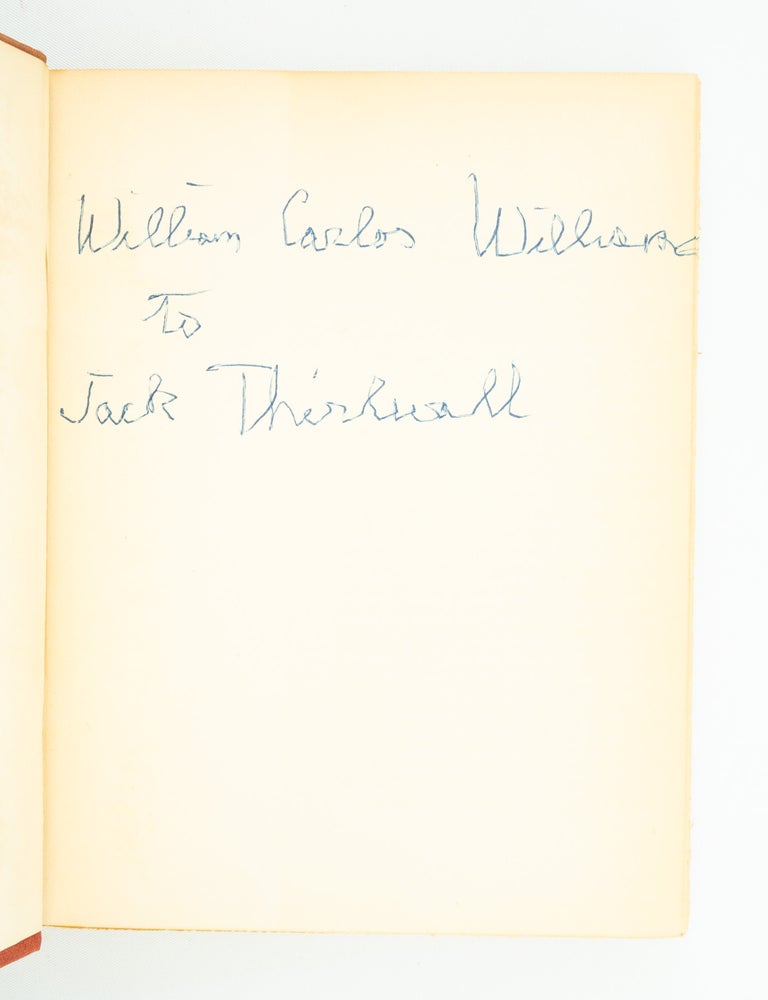 William Carlos Williams
To
Jack Thirlwall